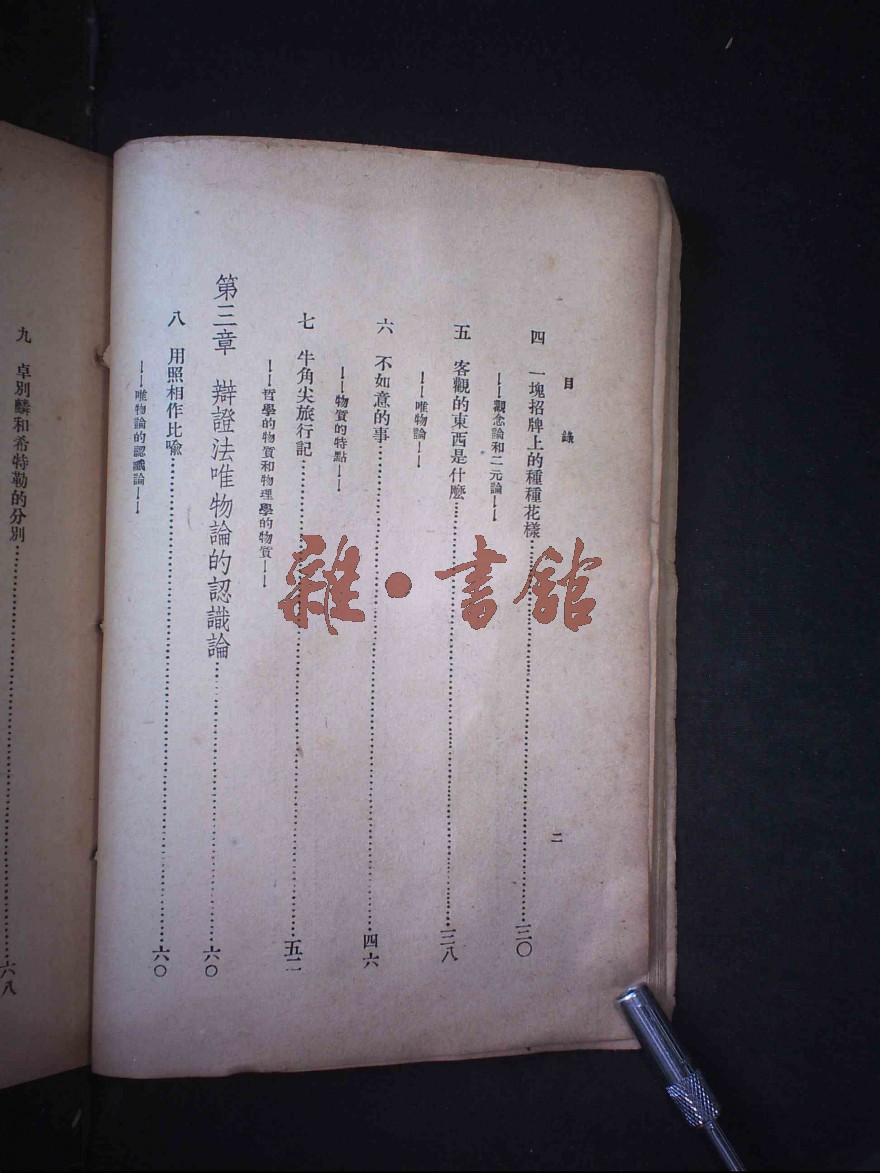 目錄
四 一塊招牌上的種種花樣……三〇
——觀念論和二元論——
五 客觀的東西是什麼……三八
——唯物論——
六 不如意的事……四六
——物質的特點——
七 牛角尖旅行記……五二
——哲學的物質和物理學的物質——
第三章 辯證法唯物論的認識論……六〇
八 用照相作比喩……六〇
——唯物論的認識論——
二
九 卓別麟和希特勒的分別……六八
雜·書館